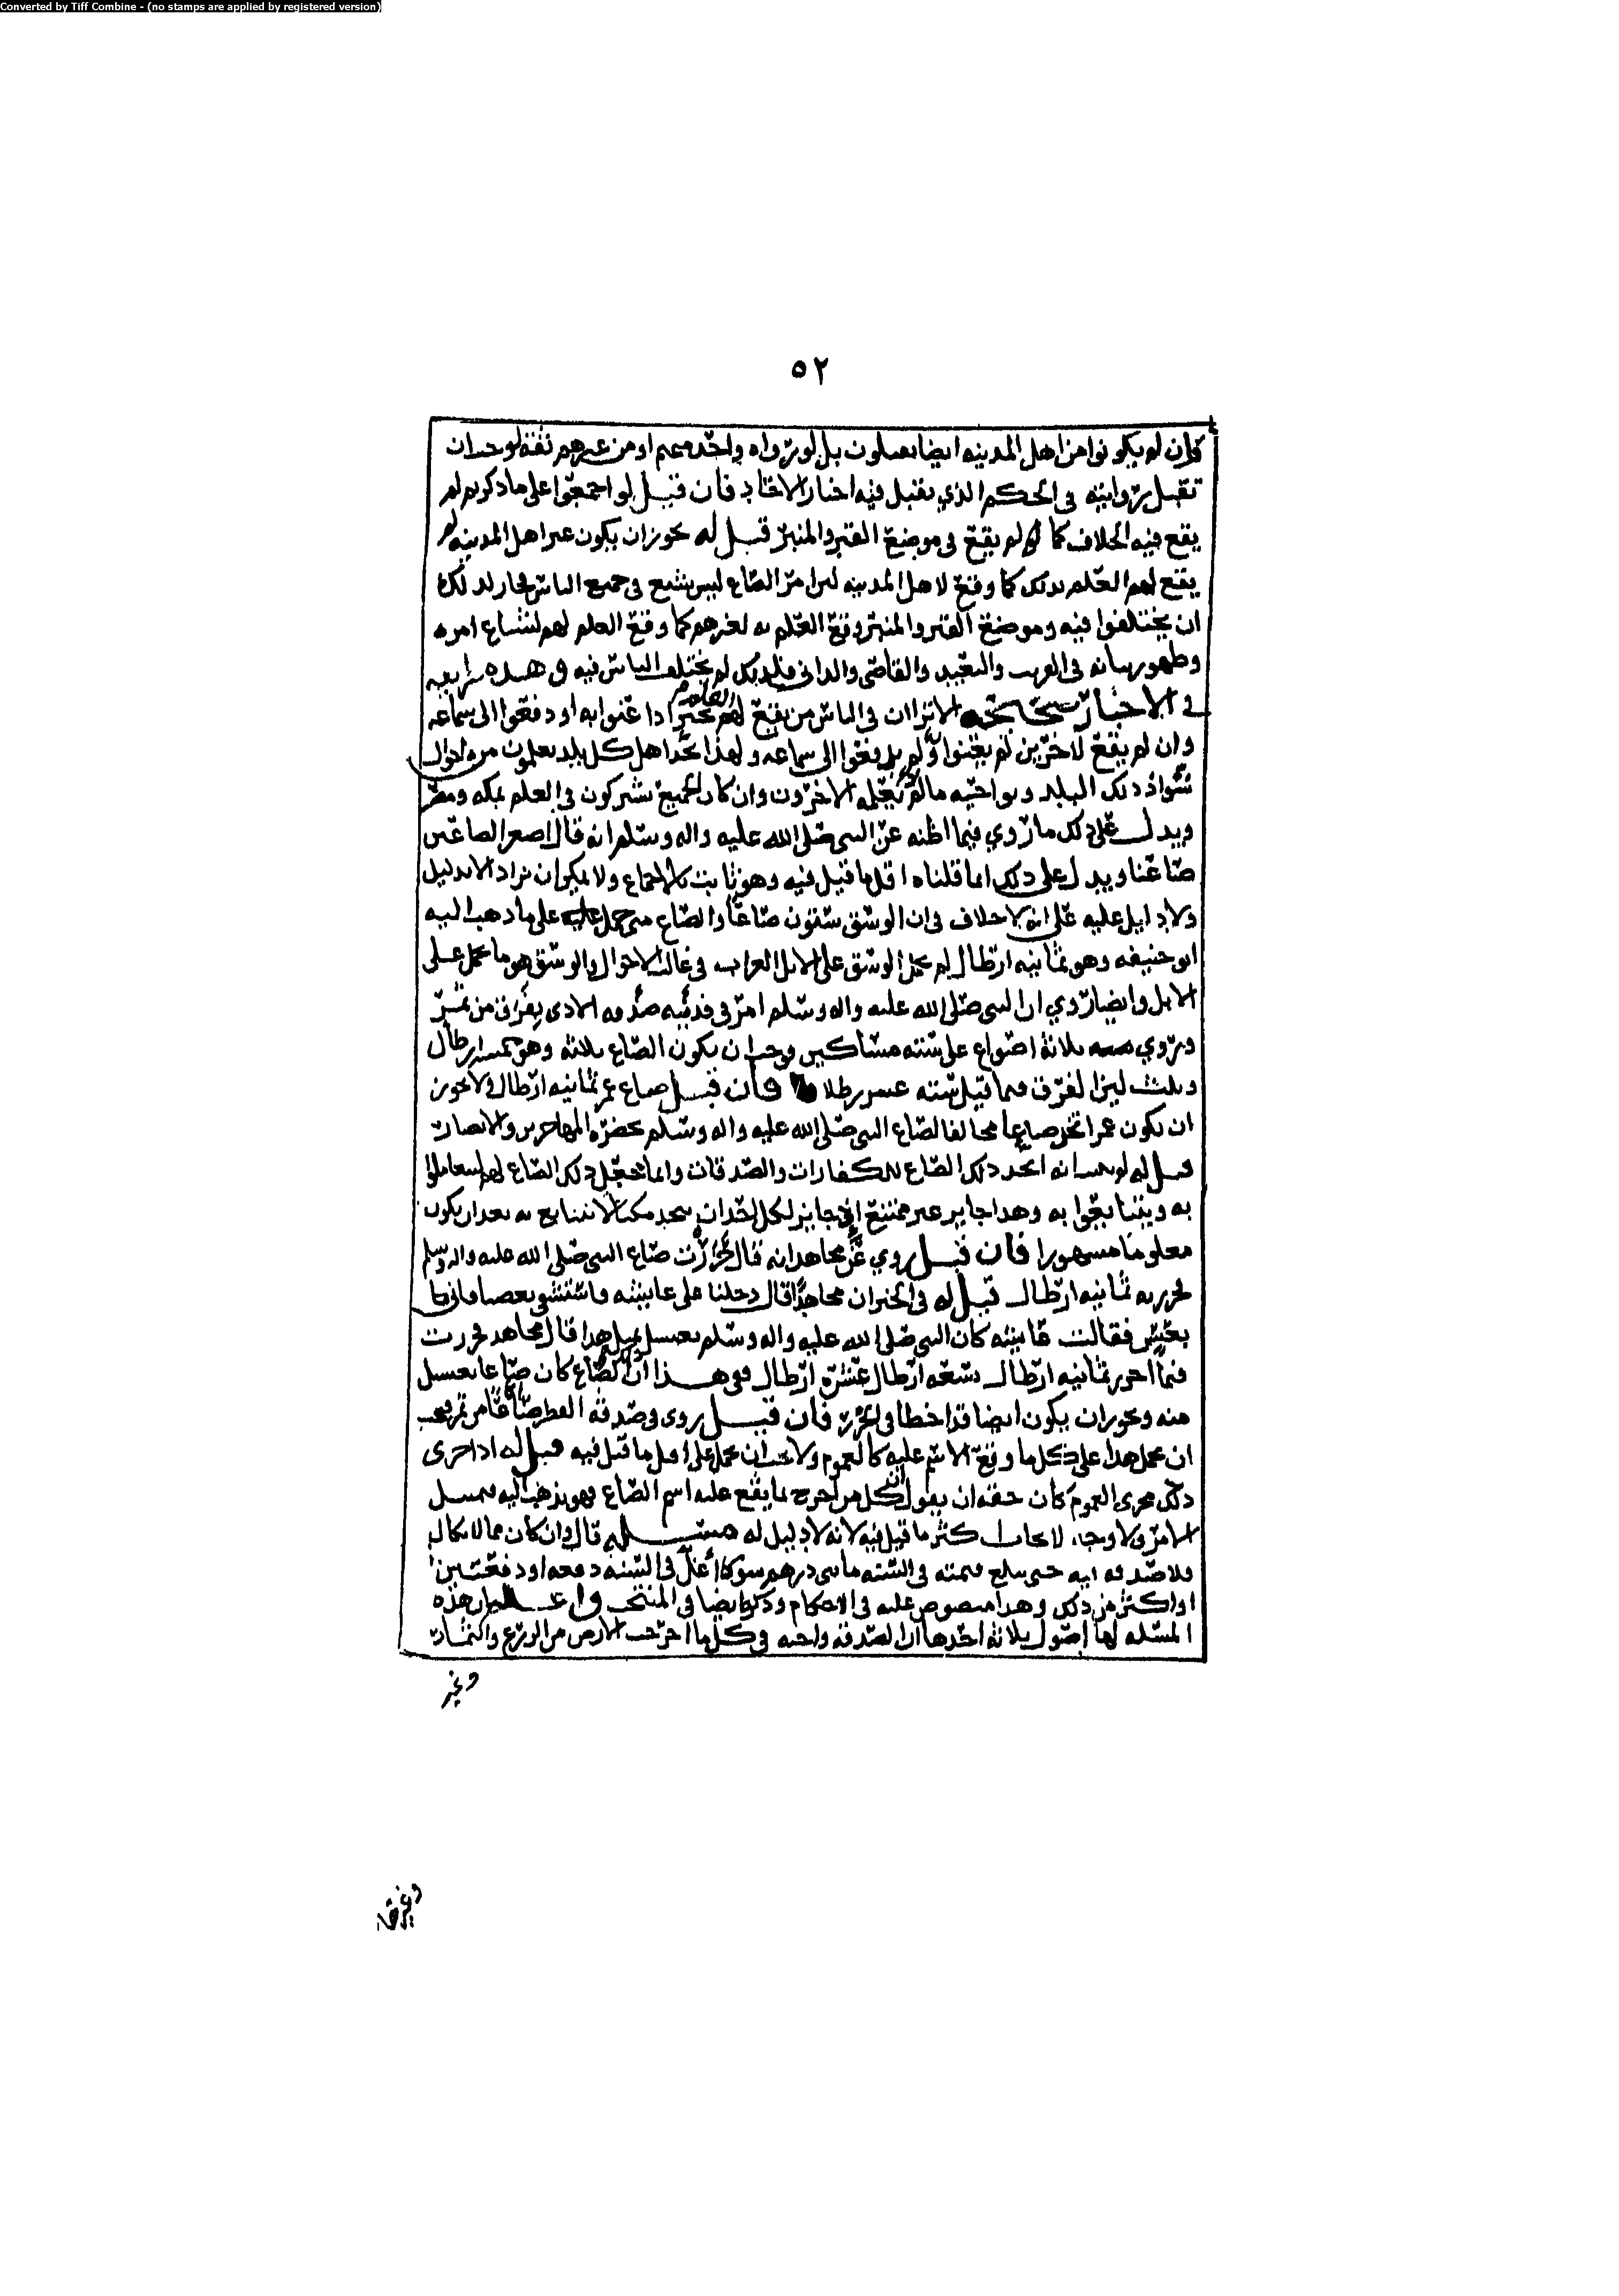 Converted by Tiff Combine - (no stamps are applied by registered version)
٥٢
كان لم يكونوا من اهل المدينه ايضا يعملون بل لو رواه واحد منهم او من غيرهم ثقة لوجب ان
تقبل روايته في الحكم الذي يقبل فيه اخبار الاحاد فان قيل لو اجمعوا على ما ذكرتم لم
يقع فيه الخلاف كما لم يقع في موضع القبر والمنبر قيل له يجوز ان يكون غير اهل المدينه لم
يقع لهم العلم بذلك كما وقع لاهل المدينه لان امر الصاع ليس يشيع في جميع الناس فجاز لذلك
ان يختلفوا فيه وموضع القبر والمنبر وقع العلم به لغيرهم كما وقع العلم لهم لشياع امره
وظهور شانه في القريب والبعيد والقاصي والداني فلذلك لم يختلف الناس فيه وهذه طريقه
في الاخبار صحيحه الا ترى ان في الناس من يقع لهم العلم بخبر اذا عنوا به او دفعوا الى سماعه
وان لم يقع لاخرين لم يعنوا ولم يدفعوا الى سماعه ولهذا نجد اهل كل بلد يعلمون من احوال
شواذ ذلك البلد ونواحيه ما لم يعلمه الاخرون وان كان الجميع يشتركون في العلم بمكه ومصر
ويدل على ذلك ما روي فيما اظنه عن النبي صلى الله عليه واله وسلم انه قال اصغر الصاعين
صاعنا ويدل على ذلك ان ما قلناه اقل ما قيل فيه وهو ثابت بالاجماع ولا يمكن ان يزاد الا بدليل
ولا دليل عليه على انه لا خلاف في ان الوسق ستون صاعا والصاع متى حمل على ما ذهب اليه
ابو حنيفه وهو ثمانيه ارطال لم يحمل الوسق على الابل العراب في غالب الاحوال والوسق هو ما يحمل على
الابل وايضا روي ان النبي صلى الله عليه واله وسلم امر في فديه الاذى بفرق من تمر
وروي ثلاثة اصواع على سته مساكين فوجب ان يكون الصاع ثلاثه وهو خمسه ارطال
وثلث لان الفرق فيما قيل سته عشر رطلا فان قيل صاع عمر ثمانيه ارطال ولا يجوز
ان يكون عمر اتخذ صاعا مخالفا لصاع النبي صلى الله عليه واله وسلم بحضرة المهاجرين والانصار
قيل له لم يثبت انه اتخذ ذلك الصاع للكفارات والصدقات وانما جعل ذلك الصاع لهم ليتعاملوا
به ويتبايعوا به وهذا جايز غير ممتنع اذ جايز لكل احد ان يتخذ مكيالا يتبايع به بعد ان يكون
معلوما مشهورا فان قيل روي عن مجاهد انه قال حزرت صاع النبي صلى الله عليه واله وسلم
فحزرته ثمانيه ارطال قيل له في الخبر ان مجاهدا قال دخلنا على عايشه فاستسقى بعضنا فاتي
بعس فقالت عايشه كان النبي صلى الله عليه واله وسلم يغتسل بمثل هذا قال مجاهد فحزرت
فيما احزر ثمانيه ارطال تسعه ارطال عشرة ارطال ففي هذا ان الصاع كان صاعا يغتسل
منه ويجوز ان يكون ايضا قد اخطا في الحزر فان قيل روي في صدقة الفطر صاعا من تمر فيجب
ان يحمل هذا على كل ما وقع الاسم عليه كالعموم ولا يجب ان يحمل على اقل ما قيل فيه قيل له اذا جرى
ذلك مجرى العموم كان حقه ان يقول ان كل من اخرج ما يقع عليه اسم الصاع فهو
لانه لا دليل له مسئله قال وان كان مما لا يكال
فلا صدقه فيه حتى يبلغ قيمته في السنه مايتي درهم سوى اغل في السنه دفعه او دفعتين
او اكثر من ذلك وهذا منصوص عليه في الاحكام وذكر ايضا في المنتخب واعلم ان هذه
المسئله لها اصول ثلاثه احدها ان الصدقة واجبه في كل ما اخرجت الارض من الزرع والثمار
وغير